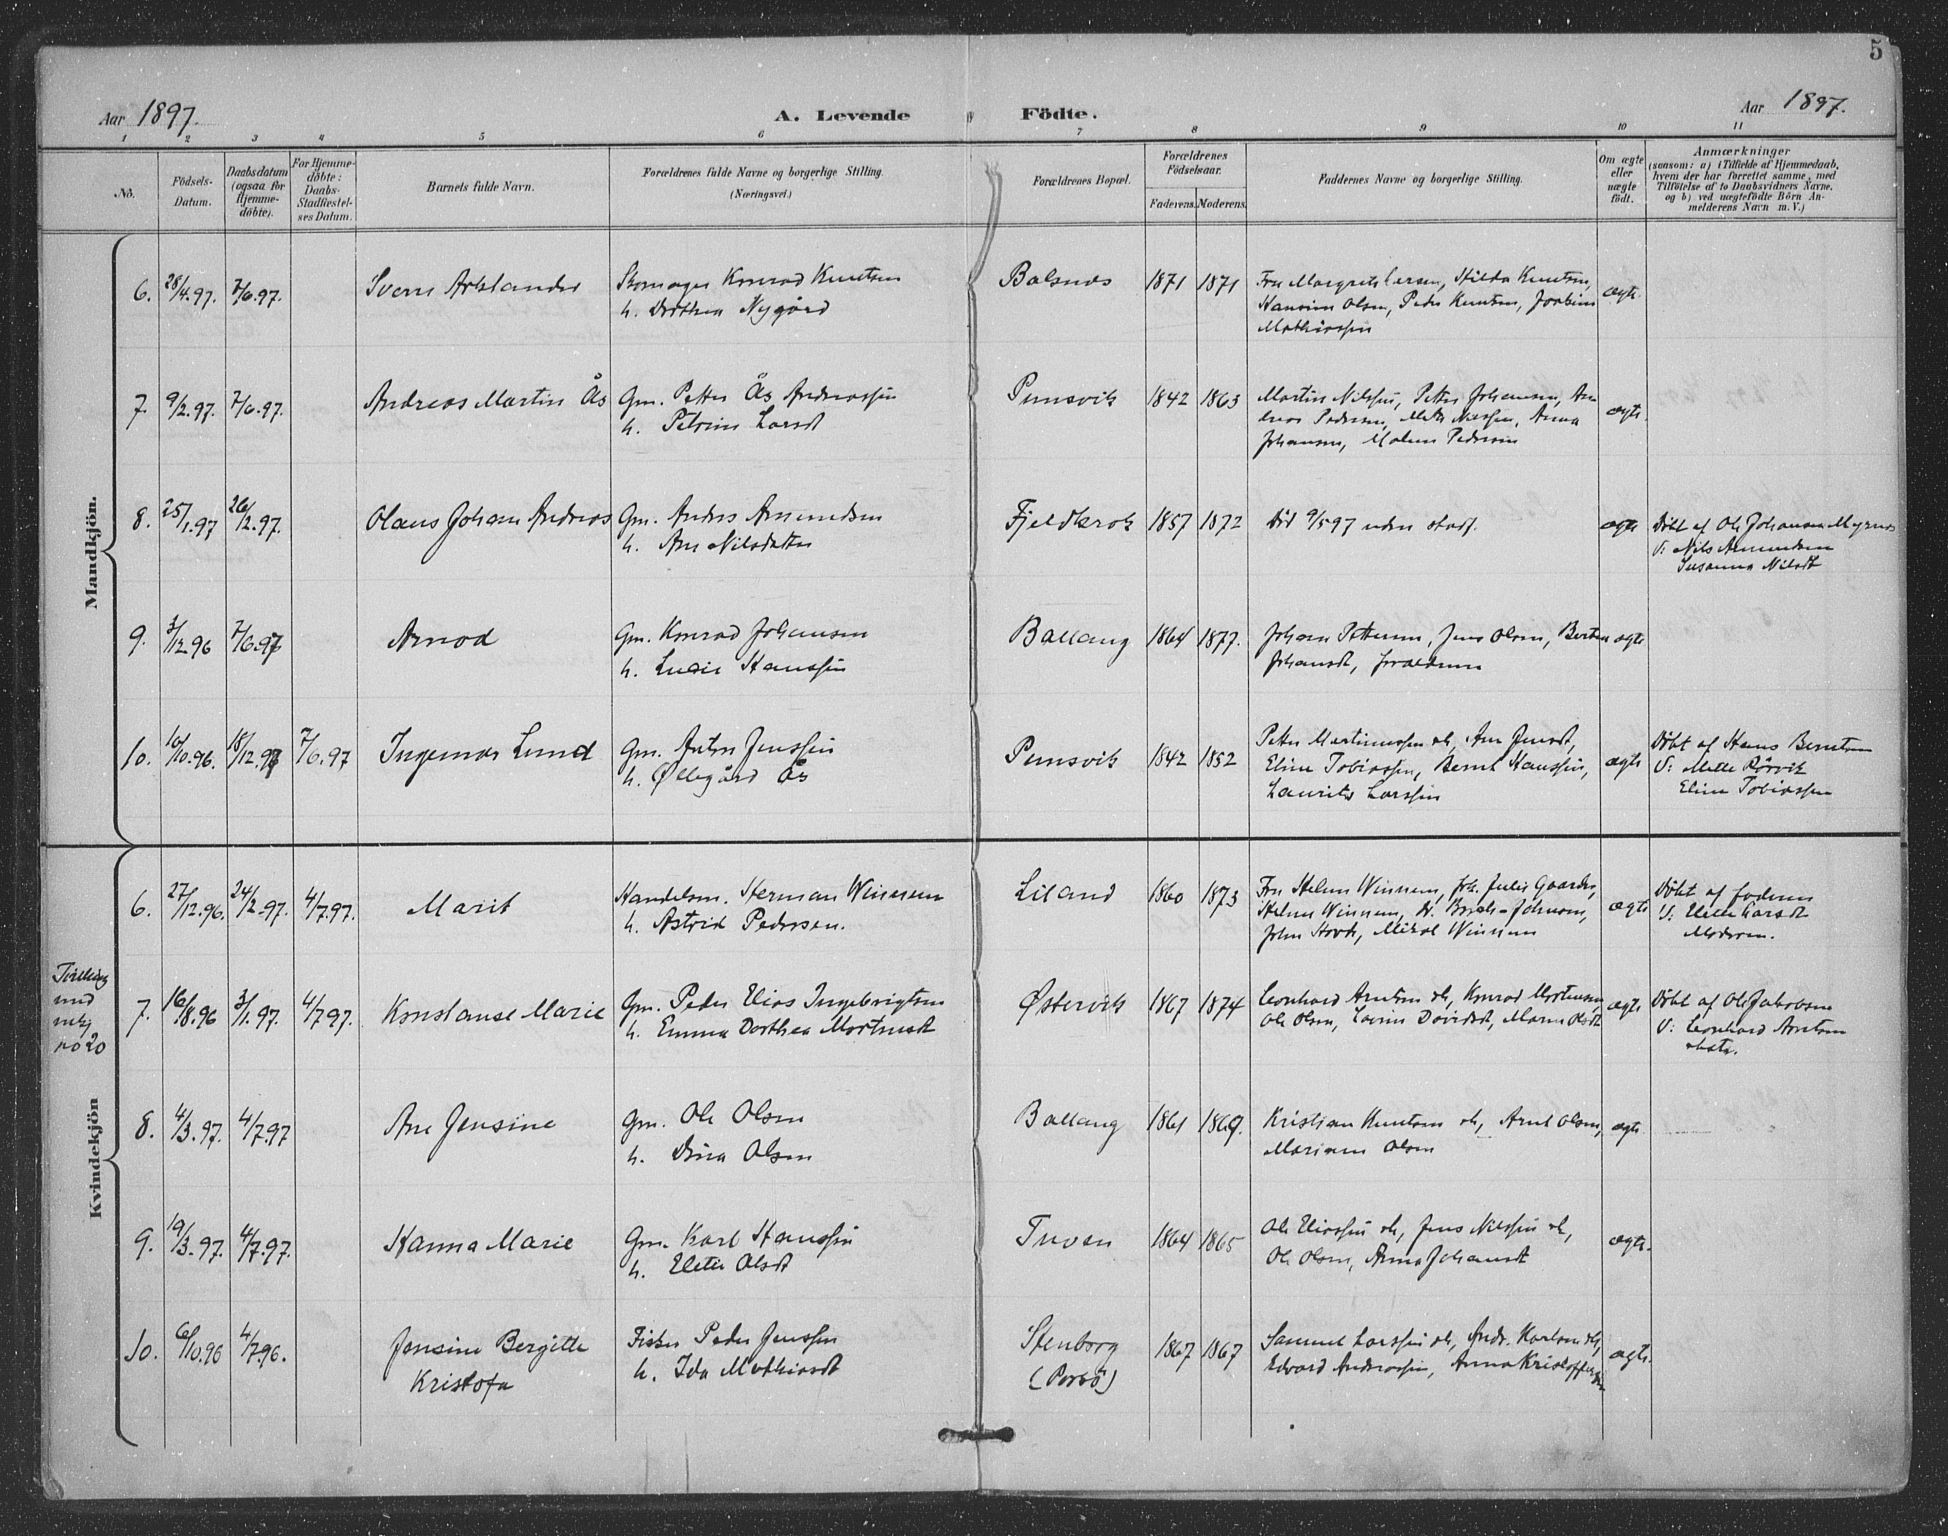 5
Aar 1897. A. Levende Födte. Aar 1897.
1 2 3 4 5 6 7 8 9 10 11
No.
Födsels-Datum.
Daabsdatum (ogsaa for Hjemme-döbte).
For Hjemme-döbte: Daabs-Stadfæstel-ses Datum.
Barnets fulde Navn.
Forældrenes fulde Navne og borgerlige Stilling. (Næringsvei.)
Forældrenes Bopæl.
Forældrenes Födselsaar.
Faderens. Moderens.
Faddernes Navne og borgerlige Stilling.
Om ægte eller uægte födt.
Anmærkninger
(saasom: a) i Tilfælde af Hjemmedaab, hvem der har forrettet samme, med Tilföielse af to Daabsvidners Navne, og b) ved uegtefödte Börn Anmelderens Navn m. V.)
Mandkjön.
6. 28/4.97. 7/6.97. Skomager Konrad Knutsen
h. Dorthea Nygård
Balsnes 1871 1871
Hilda Knutsen,
Olsen, Peder Knutsen,
Mathiassen
ægte
7. 9/2.97. 7/6.97. Andreas Martin Ås
Gm. Petter Ås Andreassen
h. Petrine Larsdt
Pünsvik 1842 1863
Martin Nilssen, Petter Johansen, An
dreas Pedersen, Meth Nilssen, Anna
Johansen, Malene Pedersen
ægte.
8. 25/1.97 26/2.97. Olaus Johan Andreas
Gm. Anders Amundsen
h. Ane Nilsdatter
Fjeldkrok 1857 1872
Död 9/5 97 uden stadf.
ægte
Döbt af Ole Johansen Myrnes
V: Nils Amundsen
Susanna Nilsdt
9. 3/12.96 7/6.97 Arnod
Gm. Konrad Johansen
h. Lucie Hanssen
Ballang 1864 1877.
Johan Pettersen, Jens Olsen, Berta
Johansdt, forældrene
ægte
10. 10/10.96. 18/12.97 7/6.97 Ingemar Lund
Gm. Anton Jenssen
h. Øllegård Ås
Pünsvik 1842 1852
Peter Martinussen oh, Ane Jensdt,
Eline Tobiassen, Bernt Hanssen,
Laurits Larssen
ægte
Döbt af Hans Berntsen
V: Mette Rörvik
Eline Tobiassen
Kvindekjön
6. 27/12.96. 24/2.97. 4/7.97. Marit
Handelsm. Herman Winnem
h. Astrid Pedersen.
Liland 1860 1873
Fru Helene Winnem, frk. Julie Gaarder,
Helene Winnem,
John Hovde, Mikal Winnem
ægte
Döbt af faderen
V: Larsdt
Moderen.
Tvilling
med
mkj
no 20
7. 16/8.96 3/1.97. 4/7 97. Konstanse Marie
Gm. Peder Elias Ingebrigtsen
h. Emma Dorthea Mortensdt
Østervik 1867 1874
Leonhard Arntsen oh, Konrad Mortensen,
Ole Olsen, Lovise Davidsdt, Maren Olsdt
ægte
Döbt af Ole Jakobsen
V: Leonhard Arntsen
8. 4/3.97. 4/7.97 Ane Jensine
Gm. Ole Olsen
h. Dina Olsen
Ballang 1861 1869.
Kristian Knutsen oh, Arnt Olsen,
Mariane Olsen
ægte
9. 19/3.97. 4/7.97. Hanna Marie
Gm. Karl Hanssen
h. Eleta Olsdt
Tuven 1864 1865
Ole Eliassen oh, Jens Nilssen oh,
Ole Olsen, Anna Johansdt
ægte.
10. 6/10.96 4/7.96. Jensine Bergitte
Kristofa
Fisker Peder Jenssen
h. Ida Mathiasdt
Stenborg
(Porsö)
1867 1867
Samuel Larssen oh, Andr. Karlsen oh,
Edvard Andreassen, Anna Kristoffersen
ægte.